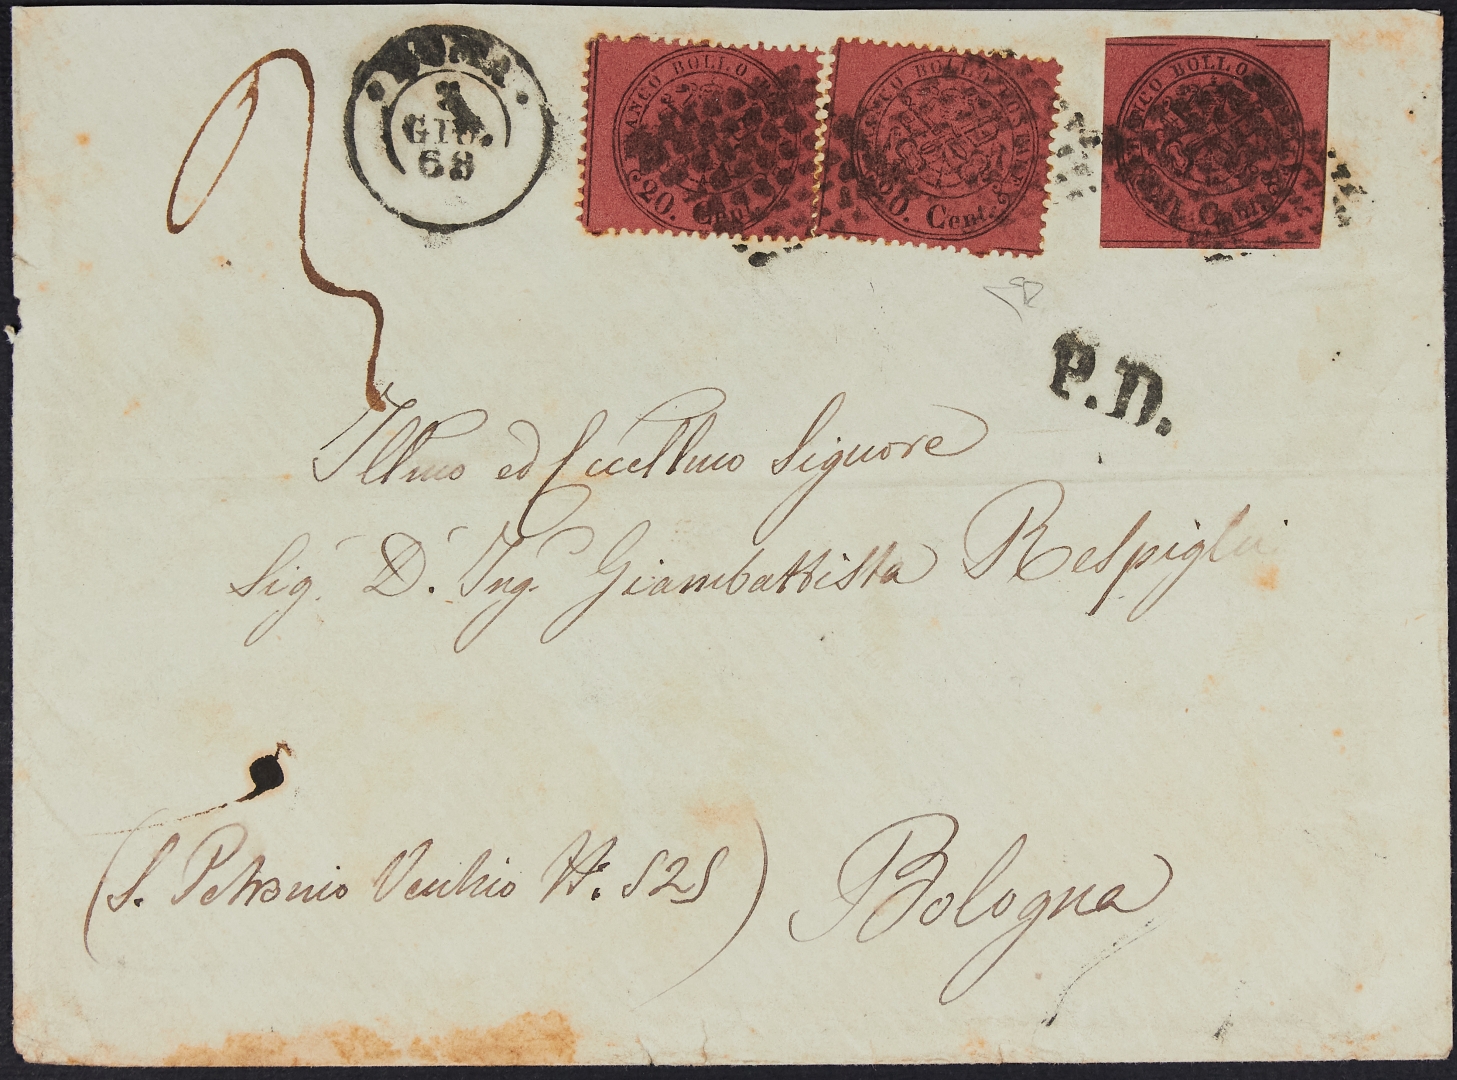 ROMA
GIU.
68
FRANCO BOLLO
20. Cent.
FRANCO BOLLO POSTALE
20. Cent.
FRANCO BOLLO
Cent.
3
P.D.
Illmo ed Eccellmo Signore
Sig. D. Ing. Giambattista Respighi
(S. Petronio Vecchio N. 525) Bologna